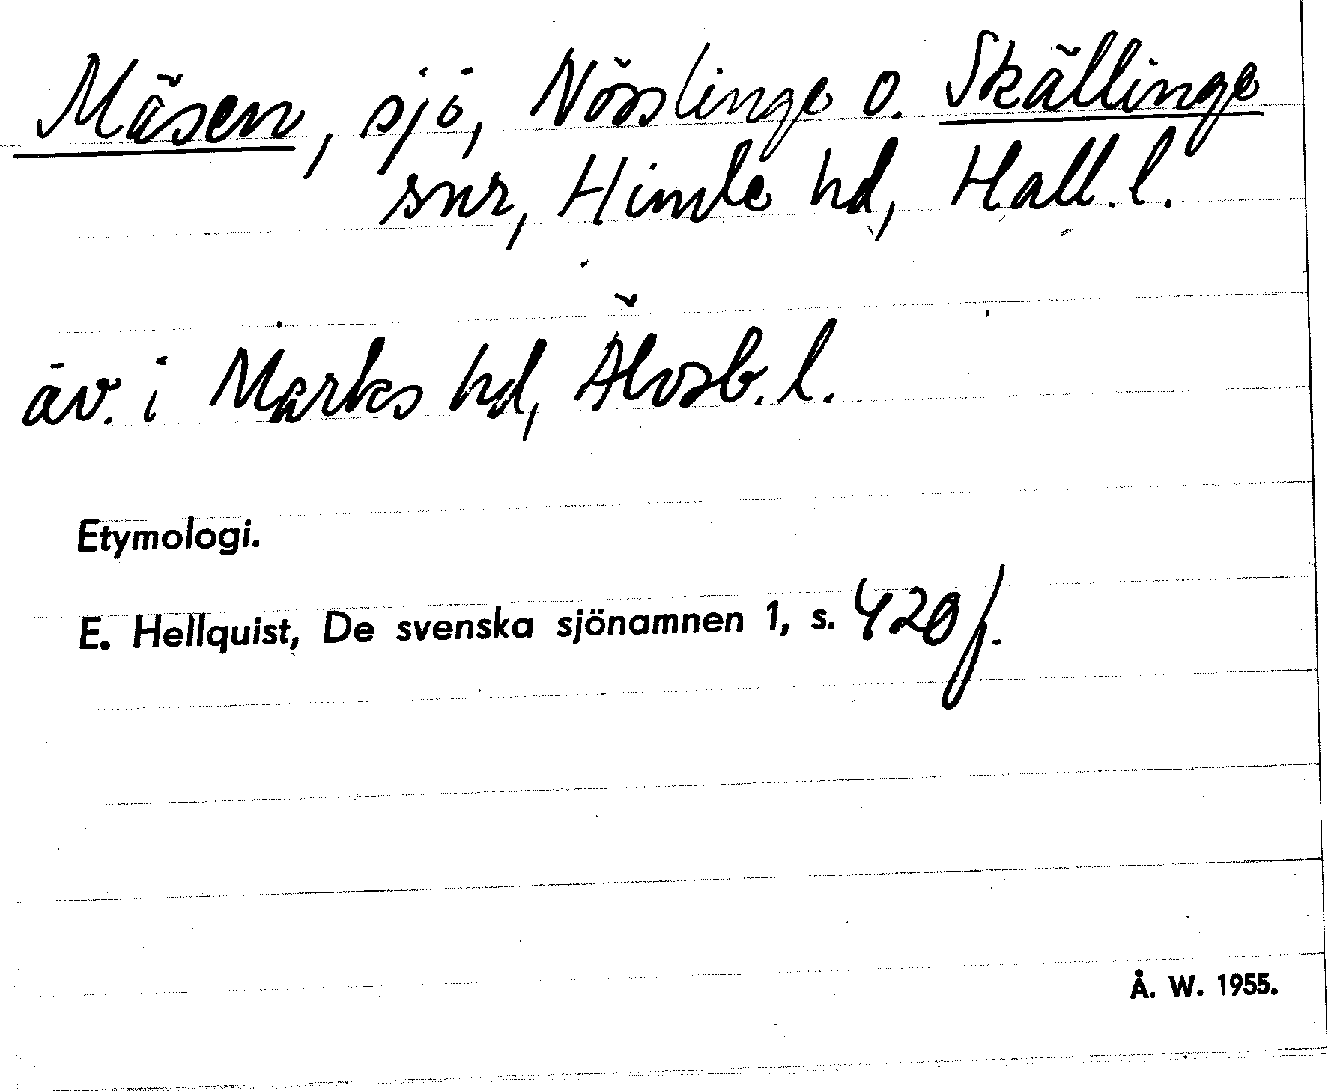 Mäsen, sjö, Nösslinge o. Skällinge
snr, Himle hd, Hall. l.
äv. i Marks hd, Älvsb. l.
Etymologi.
E. Hellquist, De svenska sjönamnen 1, s. 420 f.
Å. W. 1955.